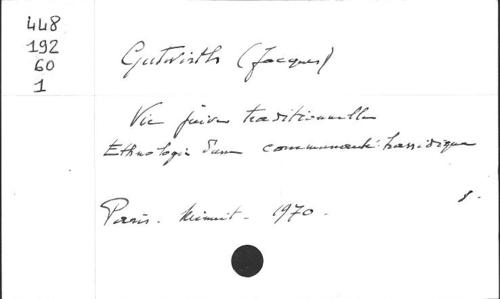 448
192
60
1
Gutwirth (Jacques)
Vie juive traditionnelle
Ethnologie d'une communauté hassidique
Paris. Minuit. 1970.
8.